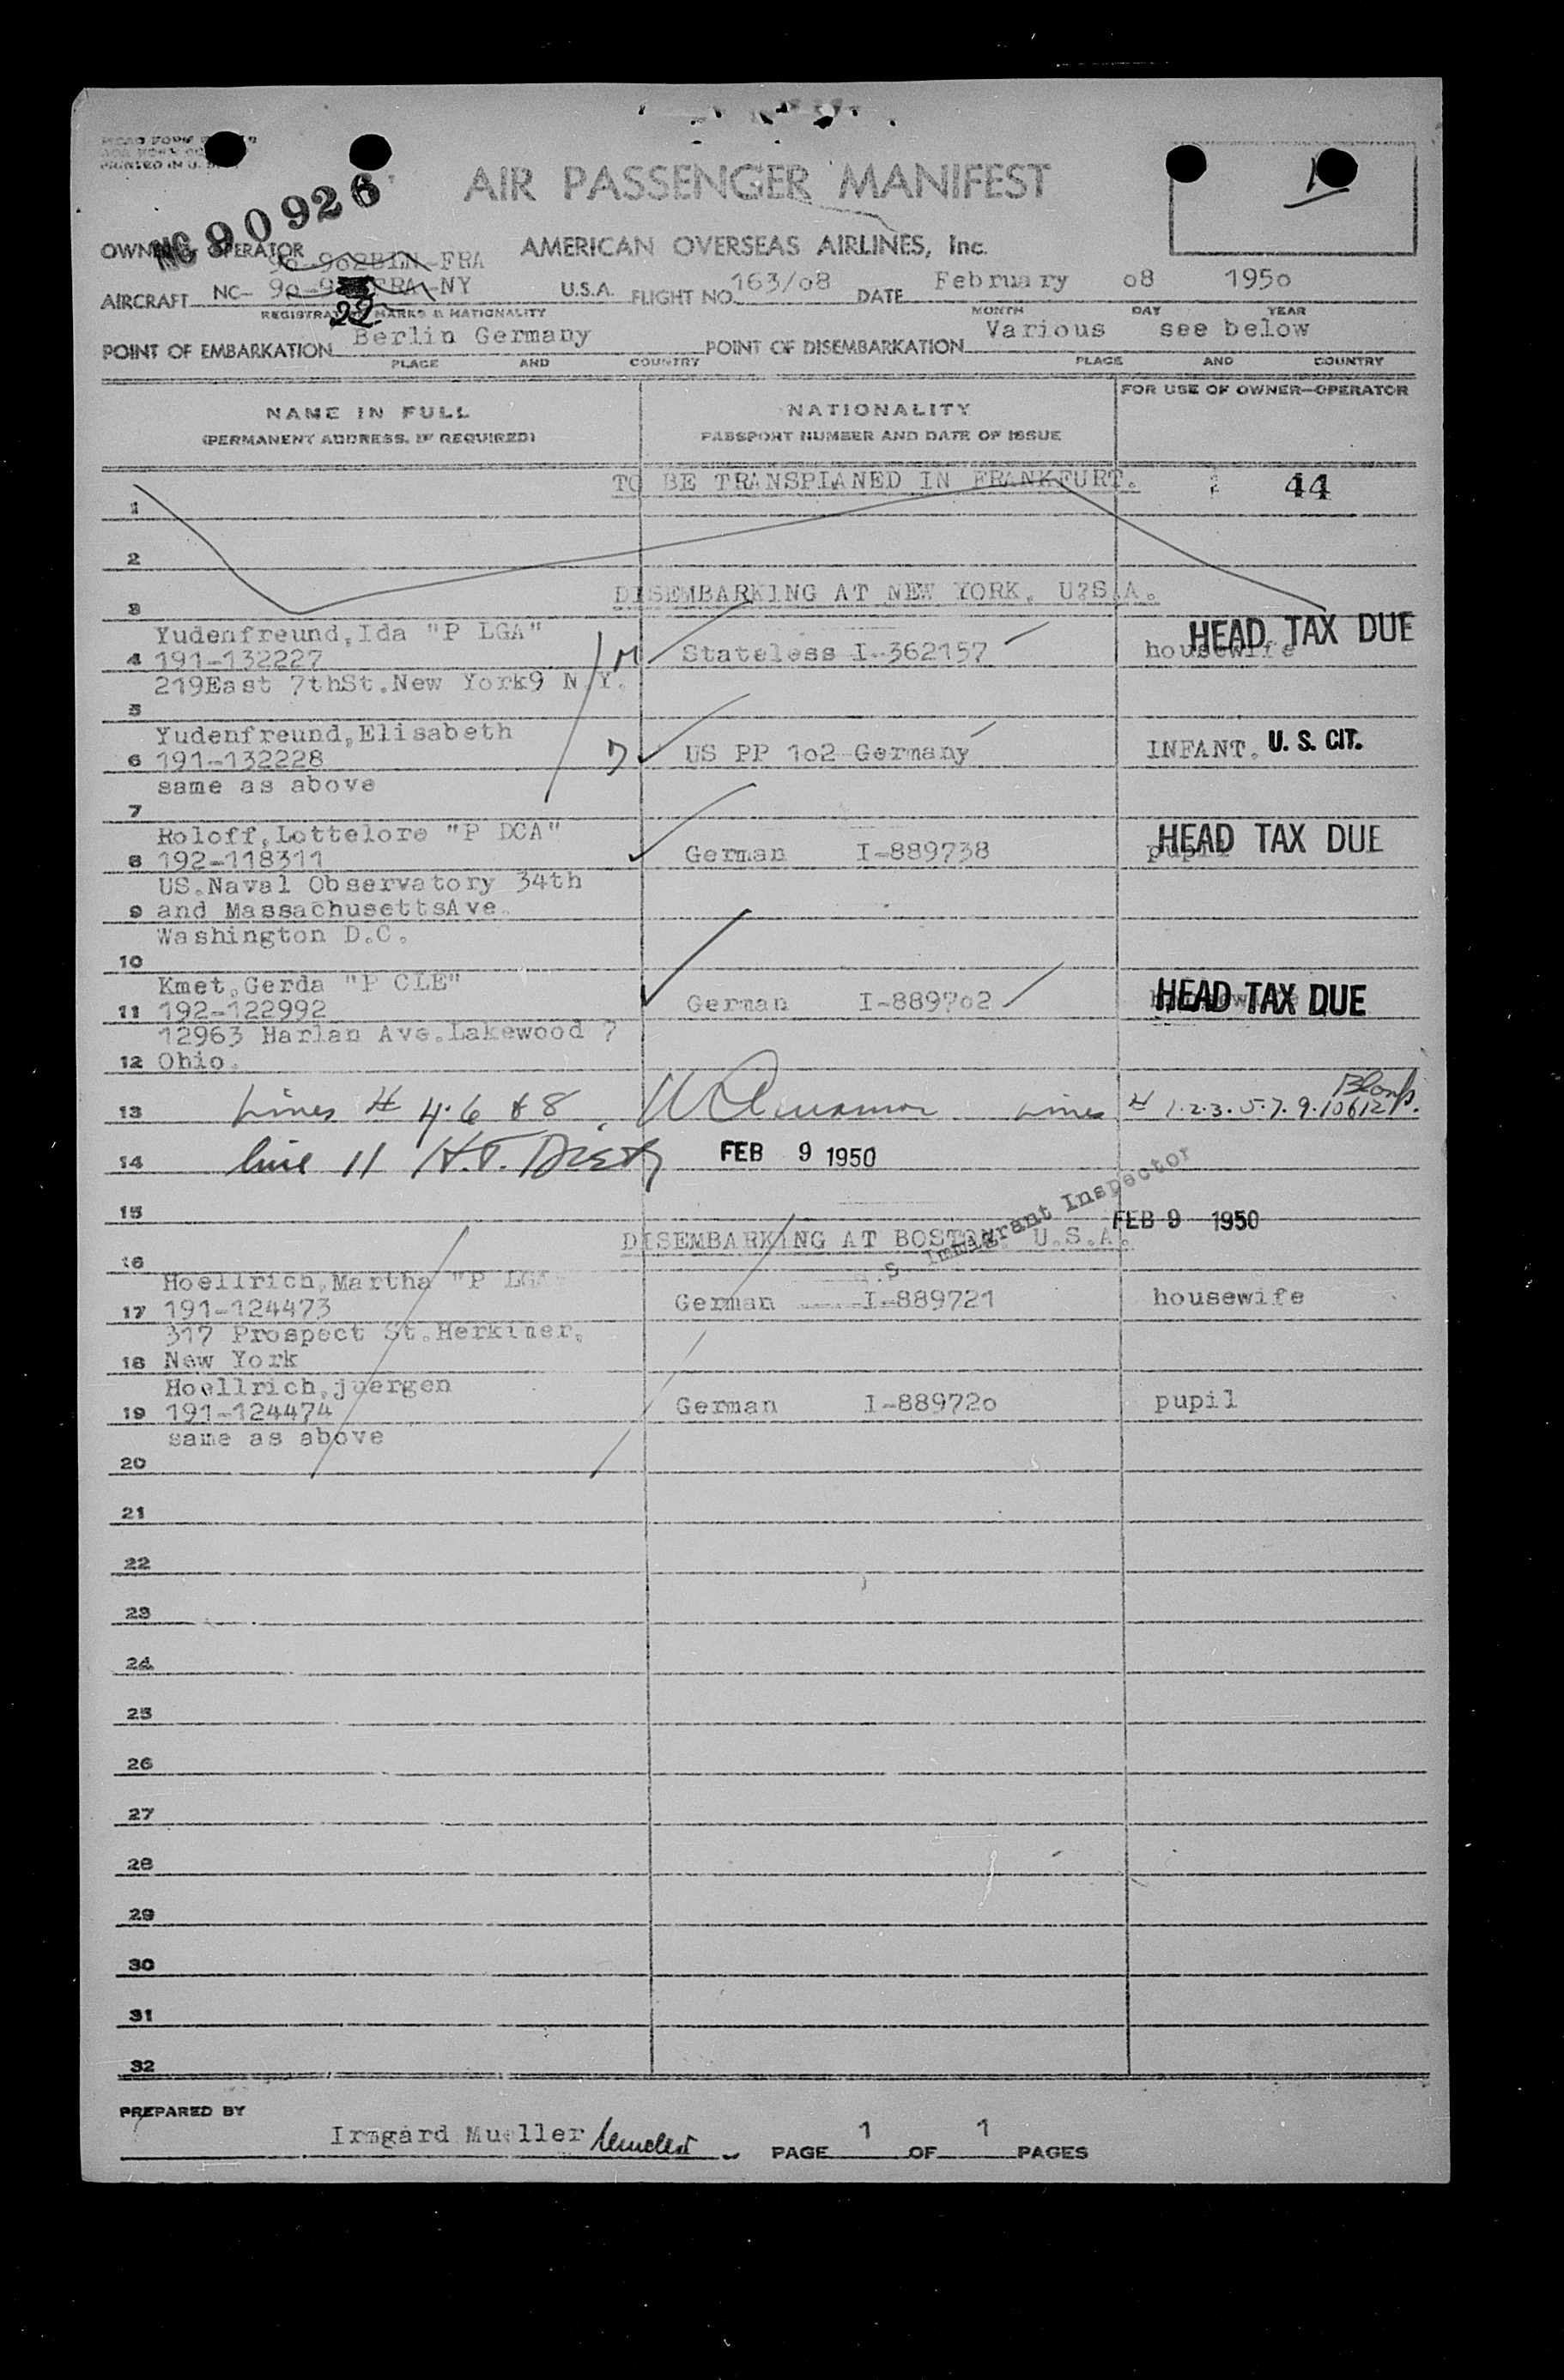 PRINTED IN U.
NC 90926
AIR PASSENGER MANIFEST
1
OWNER OPERATOR
AMERICAN OVERSEAS AIRLINES, Inc.
90-902BLN-FRA
AIRCRAFT NC- 90-9 FRA-NY U.S.A. FLIGHT NO. 163/o8 DATE February o8 195o
22
REGISTRATION MARKS & NATIONALITY MONTH DAY YEAR
POINT OF EMBARKATION Berlin Germany POINT OF DISEMBARKATION Various see below
PLACE AND COUNTRY PLACE AND COUNTRY
NAME IN FULL NATIONALITY FOR USE OF OWNER-OPERATOR
(PERMANENT ADDRESS, IF REQUIRED) PASSPORT NUMBER AND DATE OF ISSUE
TO BE TRANSPLANED IN FRANKFURT. 44
1
2
DISEMBARKING AT NEW YORK. U?S.A.
3
Yudenfreund,Ida "P LGA" HEAD TAX DUE
4 191-132227 M Stateless I-362157 housewife
219East 7thSt.New York9 N.Y.
5
Yudenfreund,Elisabeth
6 191-132228 US PP 1o2 Germany INFANT. U. S. CIT.
same as above
7
Roloff,Lottelore "P DCA" HEAD TAX DUE
8 192-118311 German I-889738 pupil
US.Naval Observatory 34th
9 and MassachusettsAve.
Washington D.C.
10
Kmet,Gerda "P CLE"
11 192-122992 German I-8897o2 housewife HEAD TAX DUE
12963 Harlan Ave.Lakewood 7
12 Ohio.
13 Lines # 4.6 & 8 Lines # 1.2.3.5.7.9.10&12 Blank.
14 line 11 FEB 9 1950
U.S. Immigrant Inspector
15 FEB 9 1950
DISEMBARKING AT BOSTON. U.S.A.
16
Hoellrich,Martha "P LGA"
17 191-124473 German I-889721 housewife
317 Prospect St.Herkimer,
18 New York
Hoellrich,juergen
19 191-124474 German I-88972o pupil
same as above
20
21
22
23
24
25
26
27
28
29
30
31
32
PREPARED BY
Irmgard Mueller PAGE 1 OF 1 PAGES